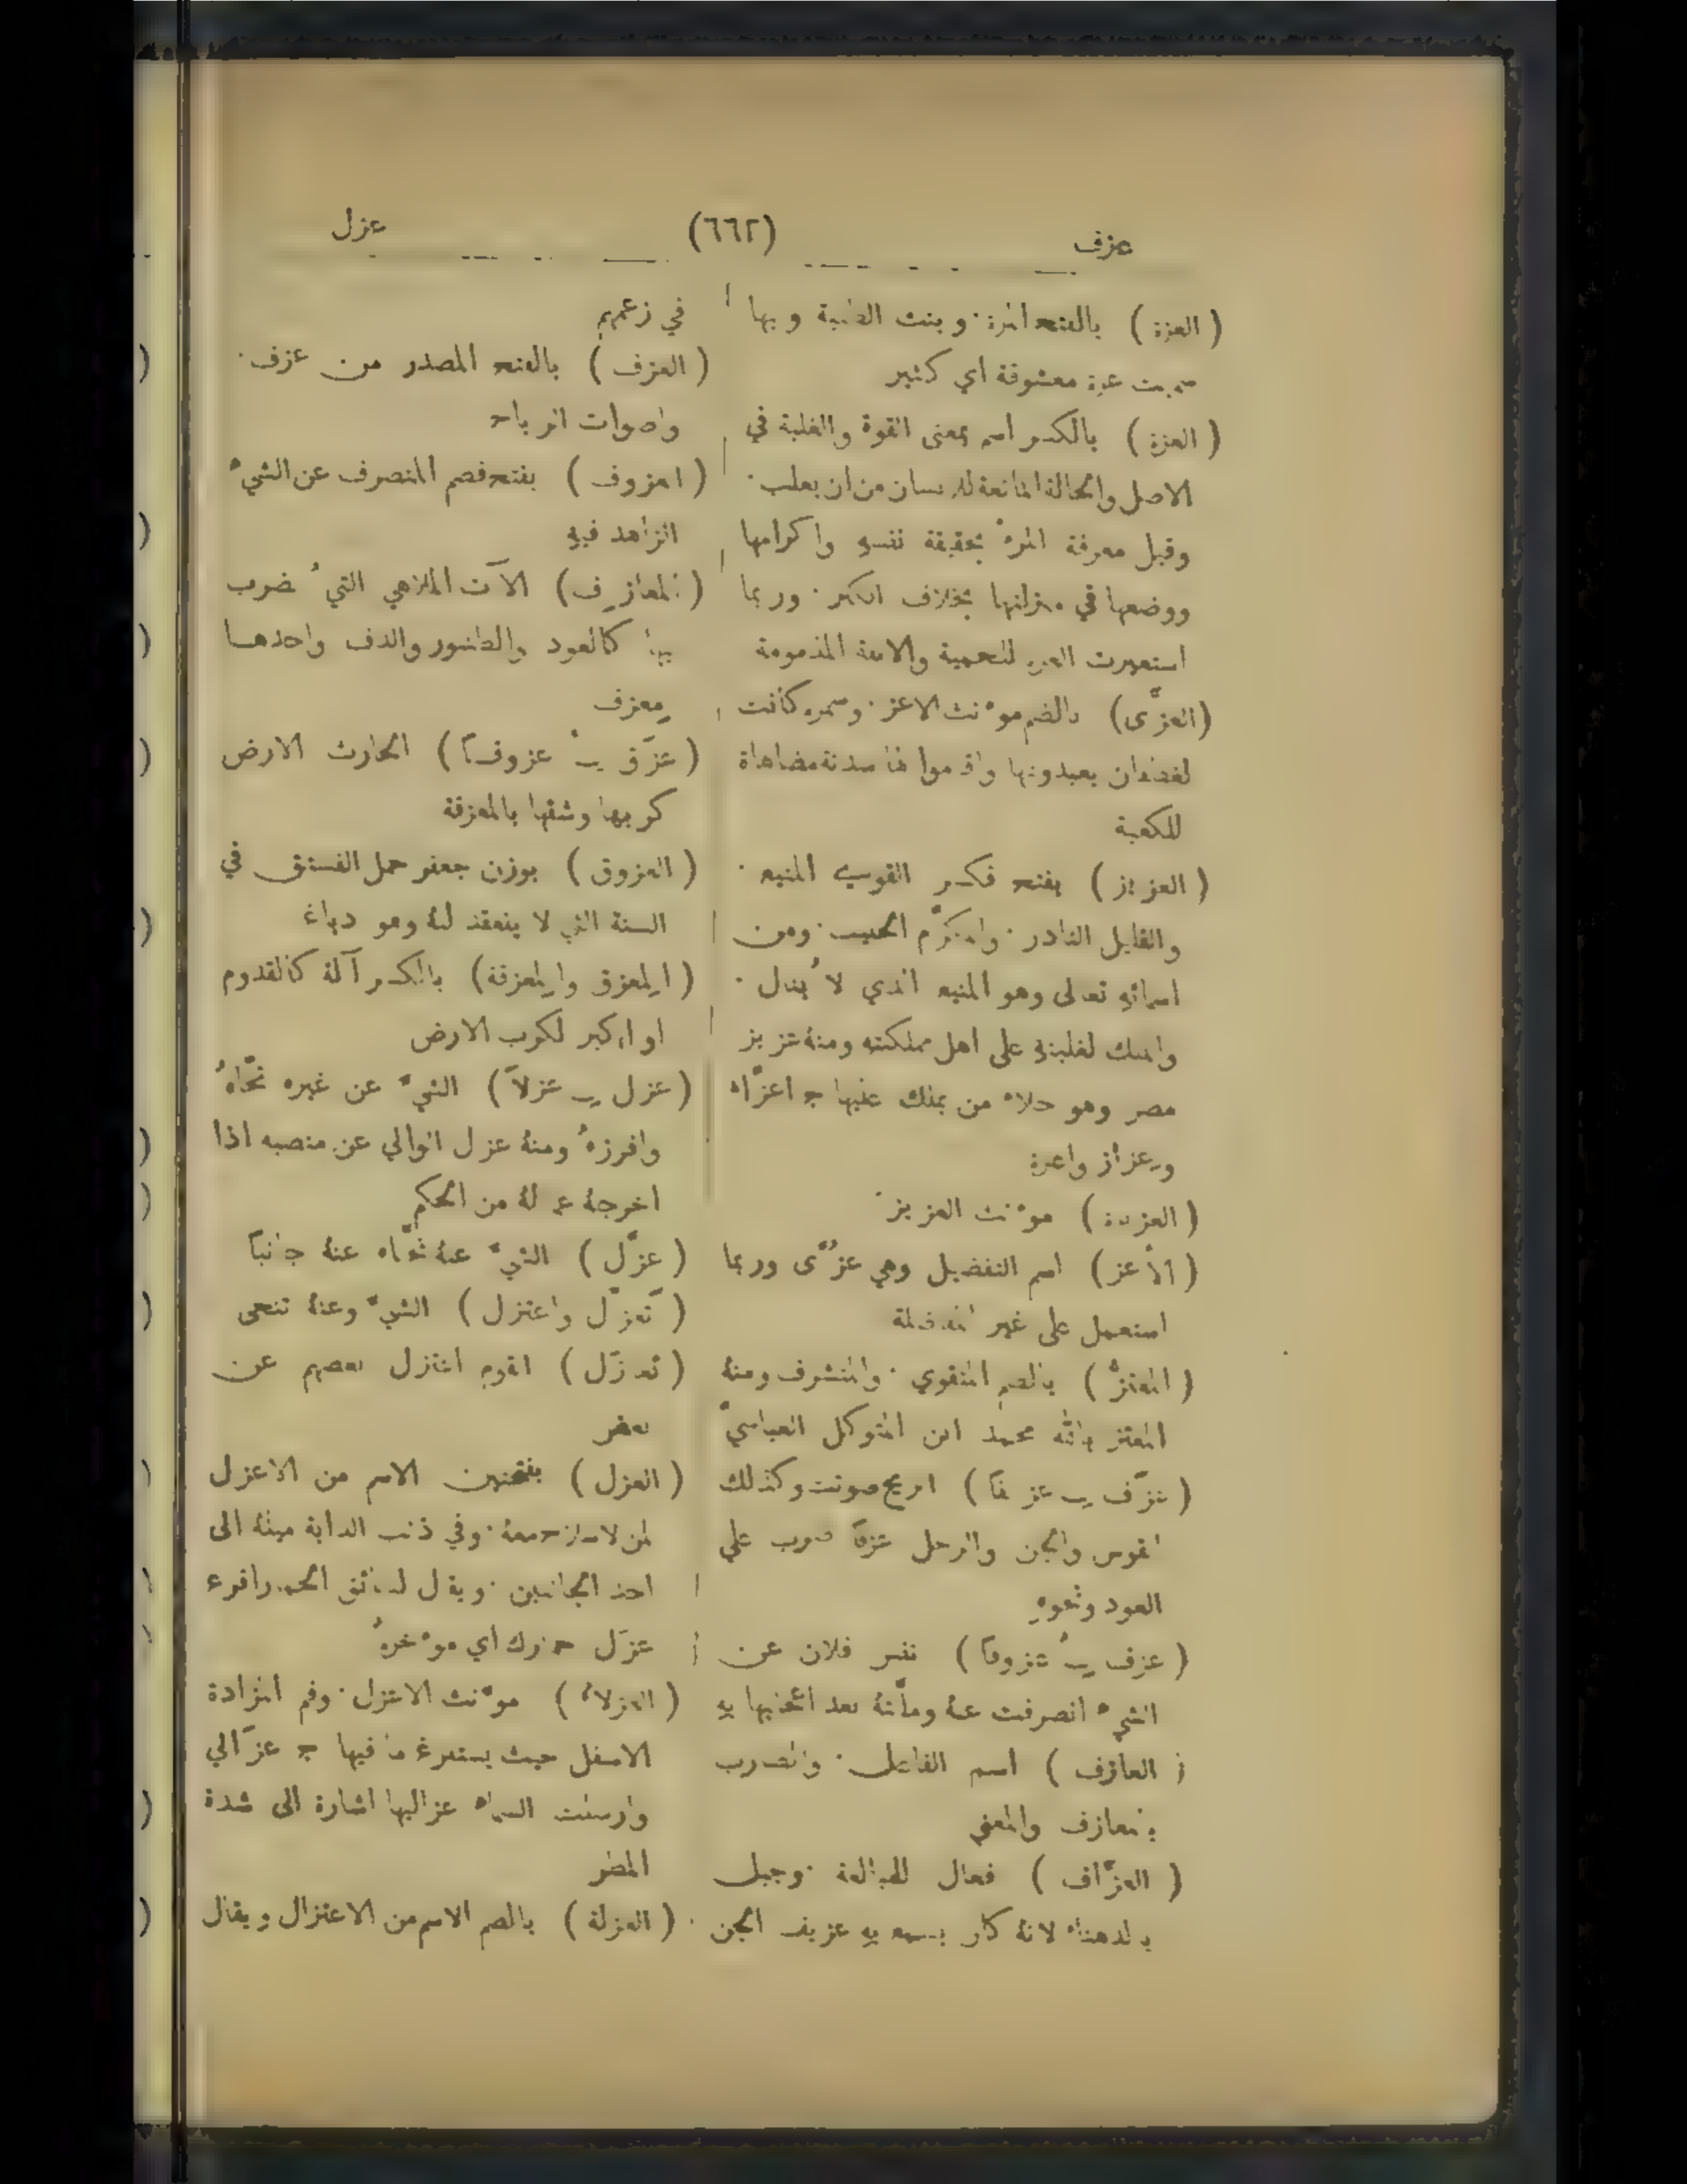 عزف (٦٦٢) عزل
(العزة) بالفتح المرة. وبنت الظبية وبها
سميت عزة معشوقة اي كثير
(العزة) بالكسر اسم بمعنى القوة والغلبة في
الاصل والحالة المانعة للانسان من ان يغلب.
وقيل معرفة المرء بحقيقة نفسه واكرامها
ووضعها في منزلتها بخلاف الكبر. وربما
استعيرت العزة للحمية والانفة المذمومة
(العزّى) بالضم مونث الاعز. وسمرة كانت
لغطفان يعبدونها واقاموا لها سدنة مضاهاة
للكعبة
(العزيز) بفتح فكسر القوي المنيع.
والقليل النادر. والمكرّم الحبيب. ومن
اسمائه تعالى وهو المنيع الذي لا يُنال.
والملك لغلبته على اهل مملكته ومنه عزيز
مصر وهو من يملك عليها ج اعزّاء
وعزاز واعزة
(العزيزة) مونث العزيز
(الأعز) اسم التفضيل وهي عزّى وربما
استعمل على غير المفاضلة
(المعتزّ) بالضم المتقوي. والمتشرف ومنه
المعتز بالله محمد ابن المتوكل العباسيّ
(عزَف ـِ عزفًا) الريح صوتت وكذلك
القوس والجن والرجل عزفًا ضرب على
العود ونحوهِ
(عزف ـُ عزوفًا) نفس فلان عن
الشيء انصرفت عنه وملّته بعد اعجابها به
(العازف) اسم الفاعل. والضارب
بالمعازف والمغني
(العزّاف) فعال للمبالغة. وجبل
بالدهناء لانه كان يسمع به عزيف الجن
في زعمهم
(العزف) بالفتح المصدر من عزف.
واصوات الرياح
(العزوف) بفتح فضم المنصرف عن الشيء
الزاهد فيه
(المعازِف) الآت الملاهي التي يُضرب
بها كالعود والطنبور والدف واحدها
مِعزف
(عزَق ـُ عزوقًا) الحارث الارض
كربها وشقها بالمعزقة
(العزوق) بوزن جعفر حمل الفستق في
السنة التي لا ينعقد لبه وهو دباغ
(المِعزق والمِعزقة) بالكسر آلة كالقدوم
او اكبر لكرب الارض
(عزل ـِ عزلاً) الشيء عن غيره نحّاهُ
وافرزهُ ومنه عزل الوالي عن منصبه اذا
اخرجه عما له من الحكم
(عزّل) الشيء عنه نحّاه عنه جانبًا
(تعزّل واعتزل) الشيء وعنه تنحى
(تعازَل) القوم اعتزل بعضهم عن
بعض
(العزل) بفتحتين الاسم من الاعزل
لمن لا سلاح معه. وفي ذنب الدابة ميله الى
احد الجانبين. ويقال لسائق الحمار اقرع
عزَل حمارك اي موخرهُ
(العزلاء) مونث الاعزل. وفم المزادة
الاسفل حيث يستفرغ ما فيها ج عزالي
وارسلت السماء عزاليها اشارة الى شدة
المطر
(العزلة) بالضم الاسم من الاعتزال ويقال